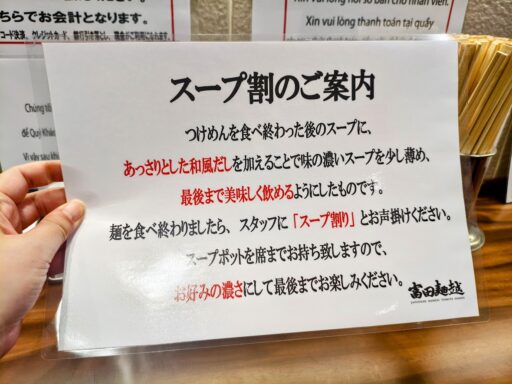 ちらでお会計となります。
コード決済、クレジットカード、
Xin vui lòng thanh toán tại quầy
スープ割のご案内
つけめんを食べ終わった後のスープに、
あっさりとした和風だしを加えることで味の濃いスープを少し薄め、
最後まで美味しく飲めるようにしたものです。
麺を食べ終わりましたら、スタッフに「スープ割り」とお声掛けください。
スープポットを席までお持ち致しますので、
お好みの濃さにして最後までお楽しみください。
富田麺越
Chúng tôi
để Quý Khá
Vì vậy sau kh